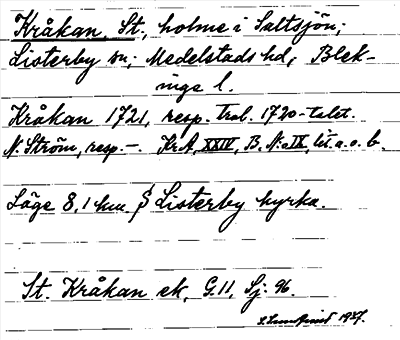 Kråkan, St., holme i Saltsjön;
Listerby sn; Medelstads hd, Blek-
inge l.
Kråkan 1721, resp. Trol. 1720-talet.
N. Ström, resp. –. KrA, XXIV, B. No IX, lit. a. o. b.
Läge 8,1 km. S Listerby kyrka.
St. Kråkan ek, G.11, Sj: 96.
1927.